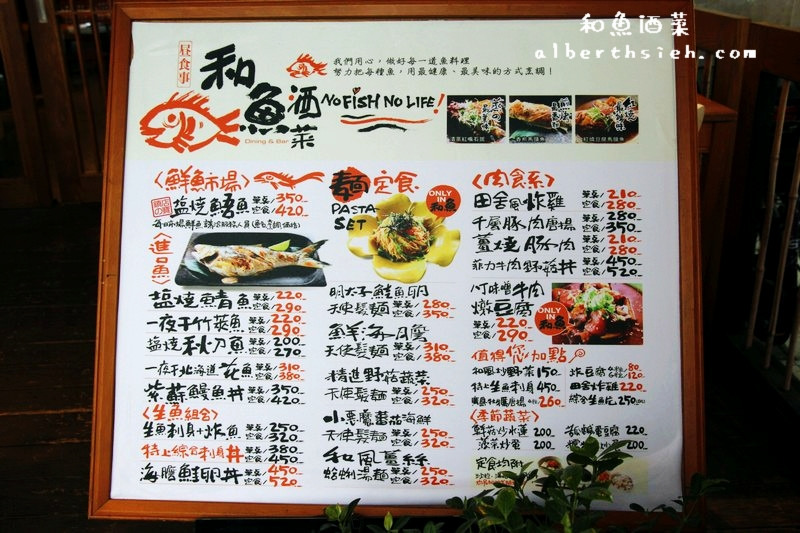 和魚酒菜
alberthsieh.com
昼食事
和魚酒菜
Dining & Bar
我們用心,做好每一道魚料理
努力把每種魚,用最健康、最美味的方式烹調!
NO FISH NO LIFE!
〈鮮魚市場〉
塩燒鱸魚 單品/350
定食/420
〈進口魚〉
塩燒鯖魚 單品/220
定食/290
一夜干竹莢魚 單品/220
定食/290
塩燒秋刀魚 單品/200
定食/270
一夜干北海道花魚 單品/310
定食/380
紫蘇鰻魚丼 單品/350
定食/420
〈生魚組合〉
生魚刺身+炸魚 單品/250
定食/320
特上綜合刺身丼 單品/380
定食/450
海膽鮭卵丼 單品/450
定食/520
麵定食
PASTA SET
ONLY IN 和魚
明太子鮭魚卵
天使髮麵 單品/280
定食/350
鮮海膽
天使髮麵 單品/310
定食/380
精進野菇蔬菜
天使髮麵 單品/250
定食/320
小惡魔蕃茄海鮮
天使髮麵 單品/250
定食/320
和風薑絲
蛤蜊湯麵 單品/250
定食/320
〈肉食系〉
田舍風炸雞 單品/210
定食/280
千層豚肉唐揚 單品/280
定食/350
薑燒豚肉 單品/210
定食/280
菲力牛肉野菇丼 單品/450
定食/520
八丁味噌牛肉
燉豆腐
單品/220
定食/290
ONLY IN 和魚
值得您加點
和風炒野菜 150
炸豆腐 80
120
特上生魚刺身 450
田舍炸雞 220
260
綜合生魚片 250
〈季節蔬菜〉
鮮菇炒水蓮 200
220
200
200
定食均附